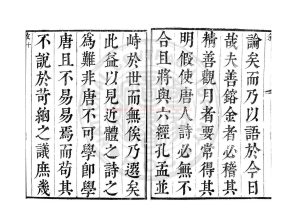 論矣而乃以語於今日
哉夫善鎔金者必稽其
精善觀月者要常得其
明假使唐人詩必無不
合且將與六經孔孟並
峙於世而無俟乃選矣
此益以見近體之詩之
為難非唐不可學即學
唐且不易易焉而苟其
不說於苛之議庶幾